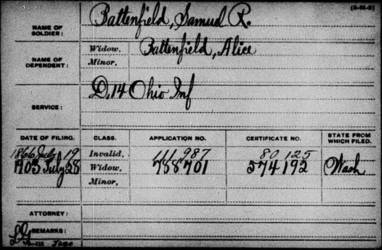 (3-35-5)
NAME OF SOLDIER: Battenfield, Samuel R.
NAME OF DEPENDENT: Widow, Battenfield, Alice
Minor,
SERVICE: D, 14 Ohio Inf
DATE OF FILING. CLASS. APPLICATION NO. CERTIFICATE NO. STATE FROM WHICH FILED.
1866 July 19 Invalid, 111 987 80 125
1903 July 28 Widow, 788701 574192 Wash
Minor,
ATTORNEY:
REMARKS: